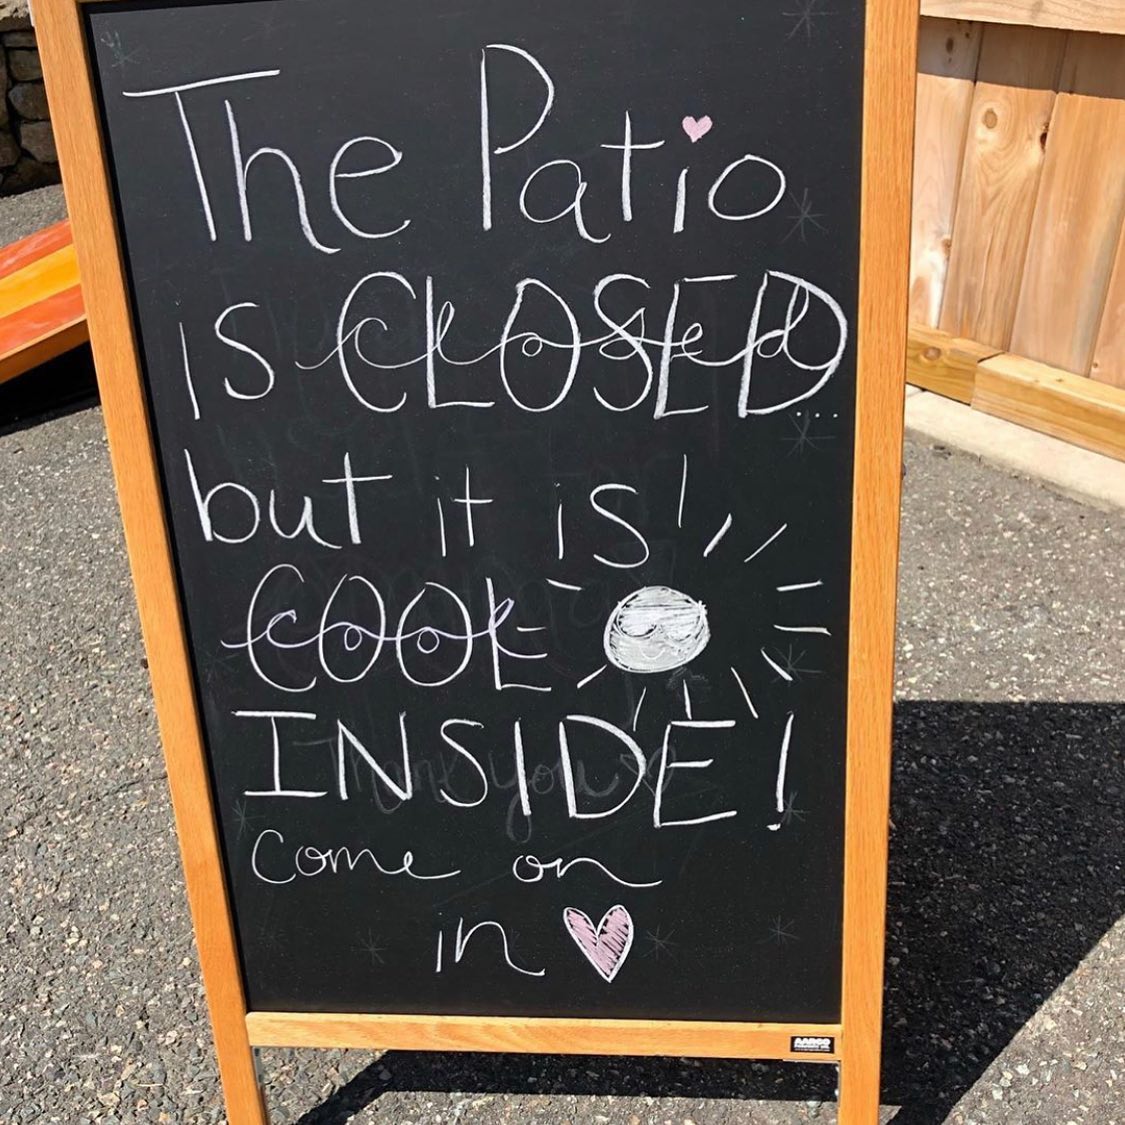 The Patio
is CLOSED...
but it is
COOL
INSIDE!
Come on
in
Thank you
AARCO